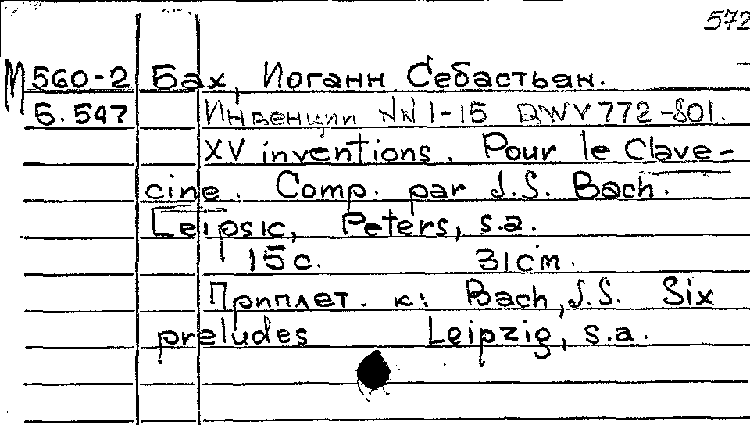 572
М 560-2 Бах, Иоганн Себастьян.
Б. 547 Инвенции NN 1-15 BWV 772-801.
XV inventions. Pour le Clave-
cine. Comp. par J.S. Bach.
Leipsic, Peters, s.a.
15 с. 31 см.
Приплет. к: Bach, J.S. Six
preludes Leipzig, s.a.